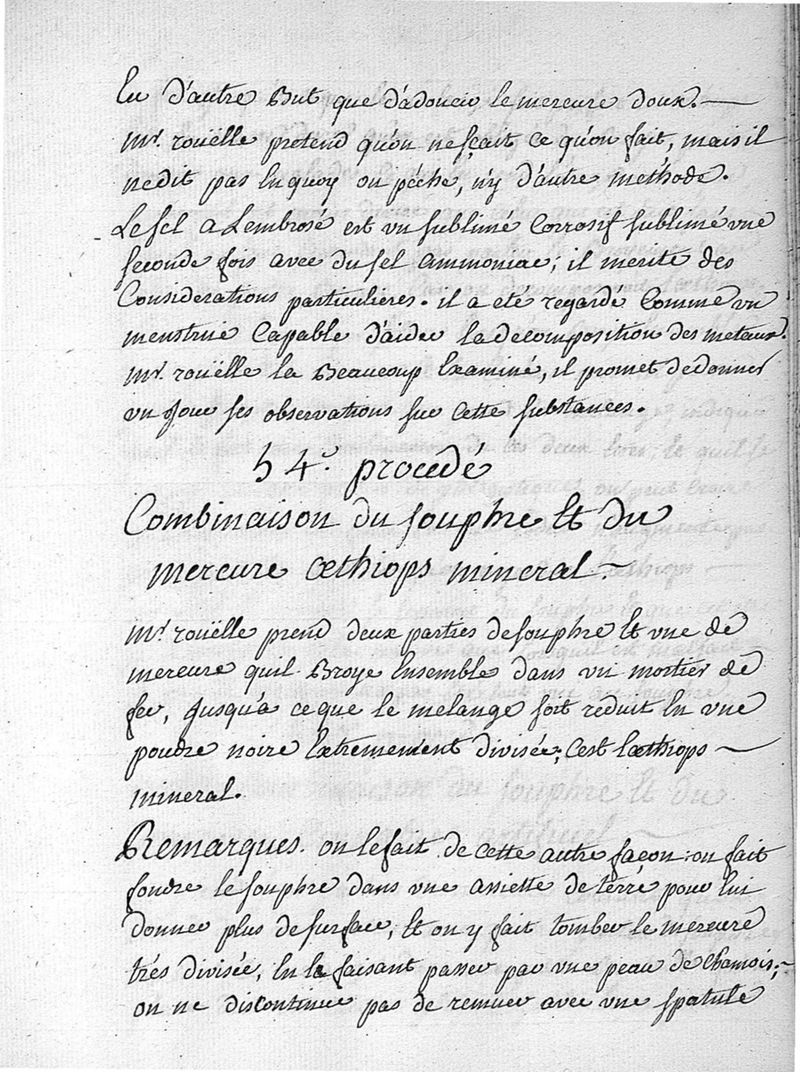 Eu d'autre But que d'adoucir le mercure doux. —
Mr. roüelle pretend qu'on ne sçait ce qu'on fait, mais il
ne dit pas En quoy on péche, n'y d'autre methode.
Le sel a Lembrosé est vn sublimé Corrosif sublimé vne
seconde fois avec du sel ammoniac; il merite des
Considerations particulières. il a eté regardé Comme vn
menstrüe Capable d'aider la decomposition des metaux.
Mr. roüelle la Beaucoup Examiné, il promet de donner
vn Jour ses observations sur Cette substances.
54.e procedé
Combinaison du souphre Et du
mercure œthiops mineral. ~
Mr. roüelle prend deux parties de souphre Et vne de
mercure quil Broye Ensemble dans vn mortier de
fer, Jusqu'a ce que le melange soit reduit En vne
poudre noire Extremement divisée; C'est Lœthiops —
mineral.
Remarques. on le fait de Cette autre façon: on fait
fondre le souphre dans vne assiette de terre pour lui
donner plus de surface, Et on y fait tomber le mercure
trés divisée, En le faisant passer par vne peau de Chamois; ~
on ne discontinüe pas de remuer avec vne spatule